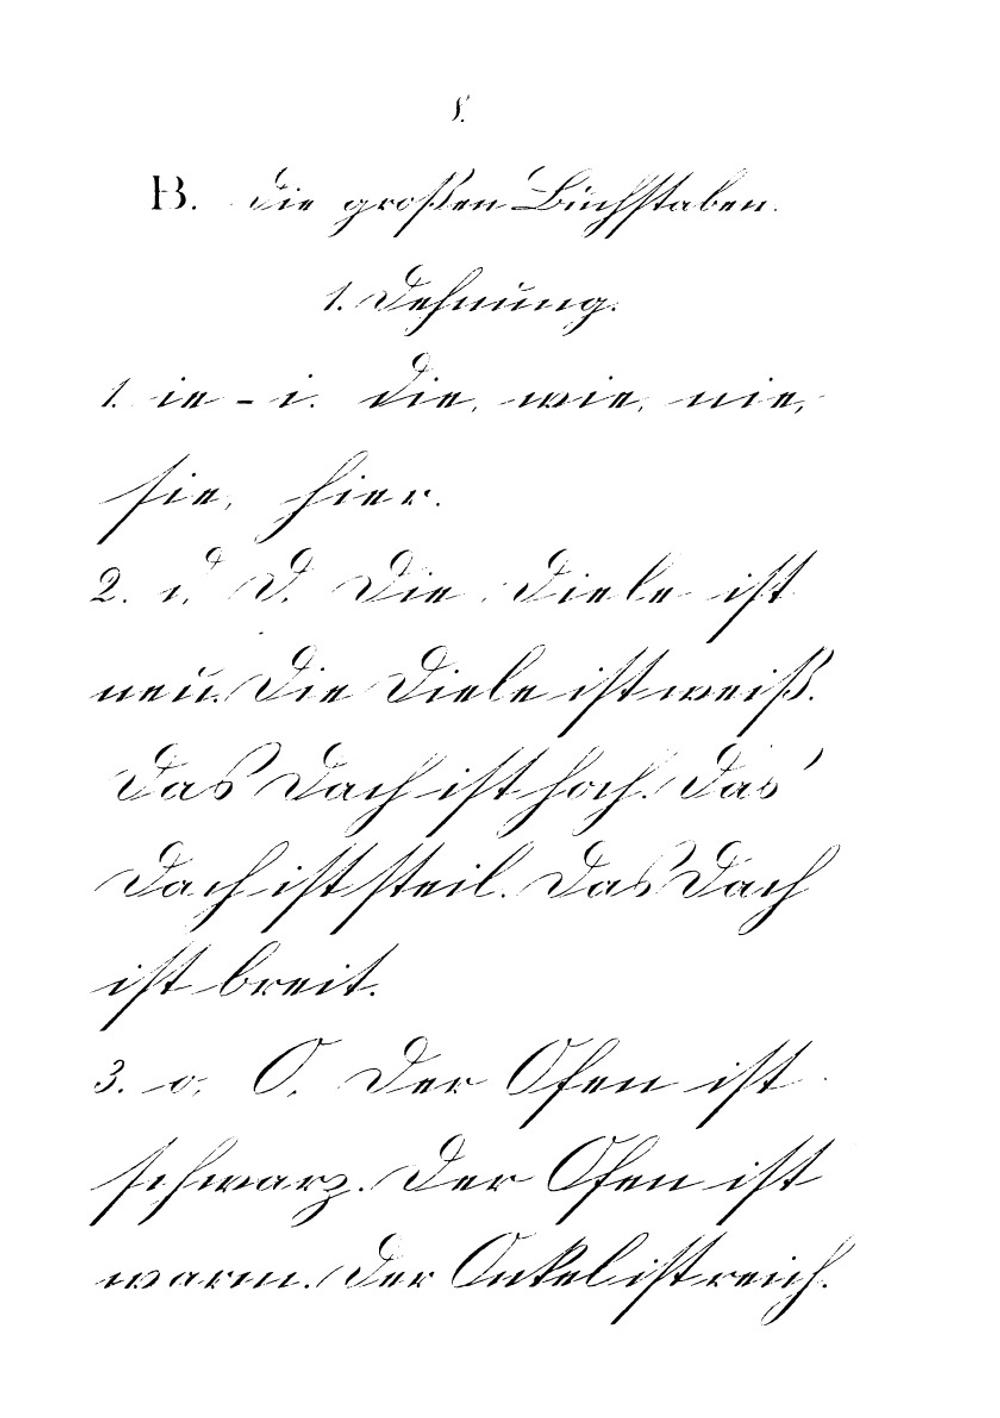 8.
B. Die großen Buchstaben.
1. Dehnung.
1. ie - i. die, wie, nie,
sie, hier.
2. d, D. Die Diele ist
neu. Die Diele ist weiß.
Das Dach ist hoch. Das
Dach ist steil. Das Dach
ist breit.
3. o, O. Der Ofen ist
schwarz. Der Ofen ist
warm. Der Onkel ist reich.